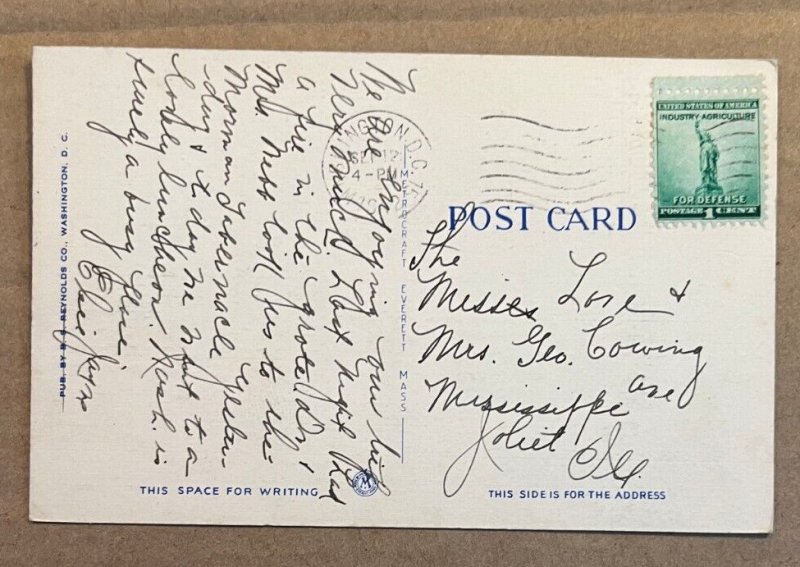 We're enjoying our trip
very much. Last night had
a fire in the grate. Dr. &
Mrs. took us to the
Mormon Tabernacle yester-
day & today we went to a
lovely luncheon. Wash. is
surely a busy place
PUB. BY REYNOLDS CO., WASHINGTON, D. C.
METROCRAFT EVERETT MASS
WASHINGTON, D.C.
SEP 12
4-PM
UNITED STATES OF AMERICA
INDUSTRY AGRICULTURE
FOR DEFENSE
POSTAGE 1 CENT
POST CARD
The
Misses Love &
Mrs. Geo. Cowing
Mississippi Ave
Joliet
Ill.
THIS SPACE FOR WRITING
M
THIS SIDE IS FOR THE ADDRESS